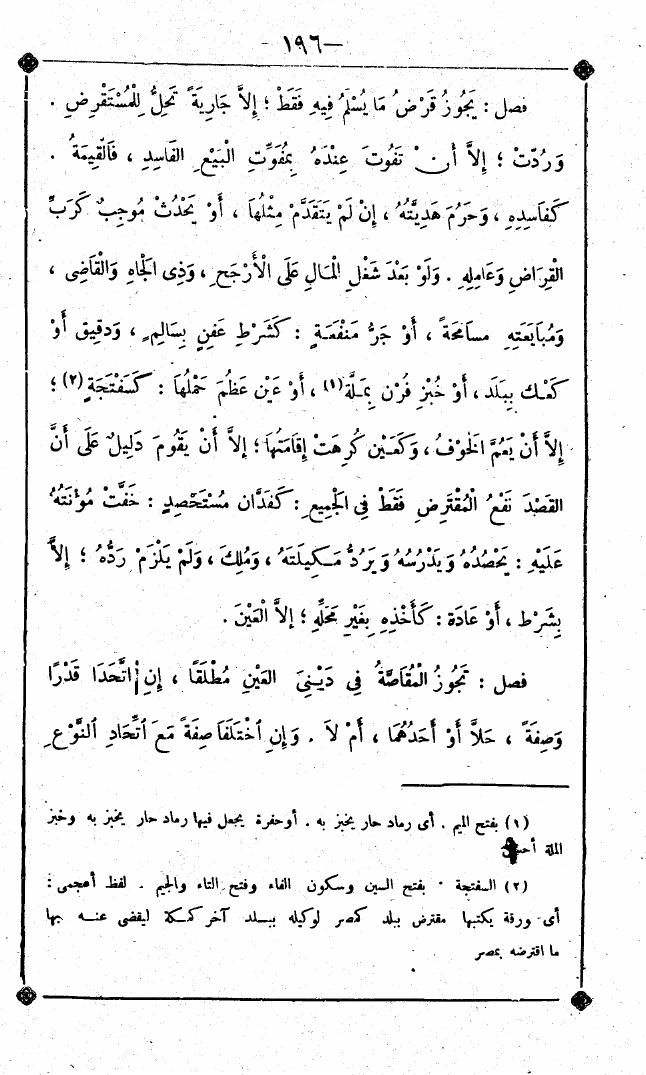 —١٩٦—
فصل : يَجُوزُ قَرْضُ مَا يُسْلَمُ فِيهِ فَقَطْ ؛ إِلاَّ جَارِيَةً تَحِلُّ لِلْمُسْتَقْرِضِ .
وَرُدَّتْ ؛ إِلاَّ أَنْ تَفُوتَ عِنْدَهُ بِمُفَوِّتِ الْبَيْعِ الفَاسِدِ ، فَالْقِيمَةُ .
كَفَاسِدِهِ ، وَحَرُمَ هَدِيَّتُهُ ، إِنْ لَمْ يَتَقَدَّمْ مِثْلُهَا ، أَوْ يَحْدُثْ مُوجِبٌ كَرَبِّ
القِرَاضِ وَعَامِلِهِ . وَلَوْ بَعْدَ شَغْلِ الْمَالِ عَلَى الْأَرْجَحِ ، وَذِى الْجَاهِ وَالْقَاضِى ،
وَمُبَايَعَتِهِ مسامَحَةً ، أَوْ جَرُّ مَنْفَعَةٍ : كَشَرْطِ عَفِنٍ بِسَالِمٍ ، وَدقِيق أَوْ
كَعْك بِبَلَد ، أَوْ خُبْزِ فُرْن بِمَلَّة (١) ، أَوْ عَيْن عَظُمَ حَمْلُهَا : كَسَفْتَجَةٍ (٢) ؛
إِلاَّ أَنْ يَعُمَّ الْخَوْفُ ، وَكَعَيْن كُرِهَتْ إِقَامَتُهَا ؛ إِلاَّ أَنْ يَقُومَ دَلِيلٌ عَلَى أَنَّ
القَصْدَ نَفْعُ الْمُقْتَرِضِ فَقَطْ فِى الْجَمِيعِ : كَفَدَّان مُسْتَحْصِدٍ : خَفَّتْ مُؤْنَتُهُ
عَلَيْهِ : يَحْصُدُهُ وَيَدْرُسُهُ وَيَرُدُّ مَكِيلَتَهُ ، وَمُلِكَ ، وَلَمْ يَلْزَمْ رَدُّهُ ؛ إِلاَّ
بِشَرْط ، أَوْ عَادَة : كَأَخْذِهِ بِغَيْرِ مَحَلِّهِ ؛ إلاَّ الْعَيْنَ .
فصل : تَجُوزُ الْمُقَاصَّةُ فِى دَيْنِىَ العَيْنِ مُطْلَقًا ، إِنِ اتَّحَدَا قَدْرًا
وَصِفَةً ، حَلاَّ أَوْ أَحَدُهُمَا ، أَمْ لاَ . وَإِنِ اخْتَلَفَا صِفَةً مَعَ اتِّحَادِ النَّوْعِ
(١) بفتح الميم . أى رماد حار يخبز به . أو حفرة يجعل فيها رماد حار يخبز به وخبز
الملة أحسن
(٢) السفتجة . بفتح السين وسكون الفاء وفتح التاء والجيم . لفظ أعجمى :
أى ورقة يكتبها مقترض ببلد كمصر لوكيله ببلد آخر كمكة ليقضى عنه بها
ما اقترضه بمصر